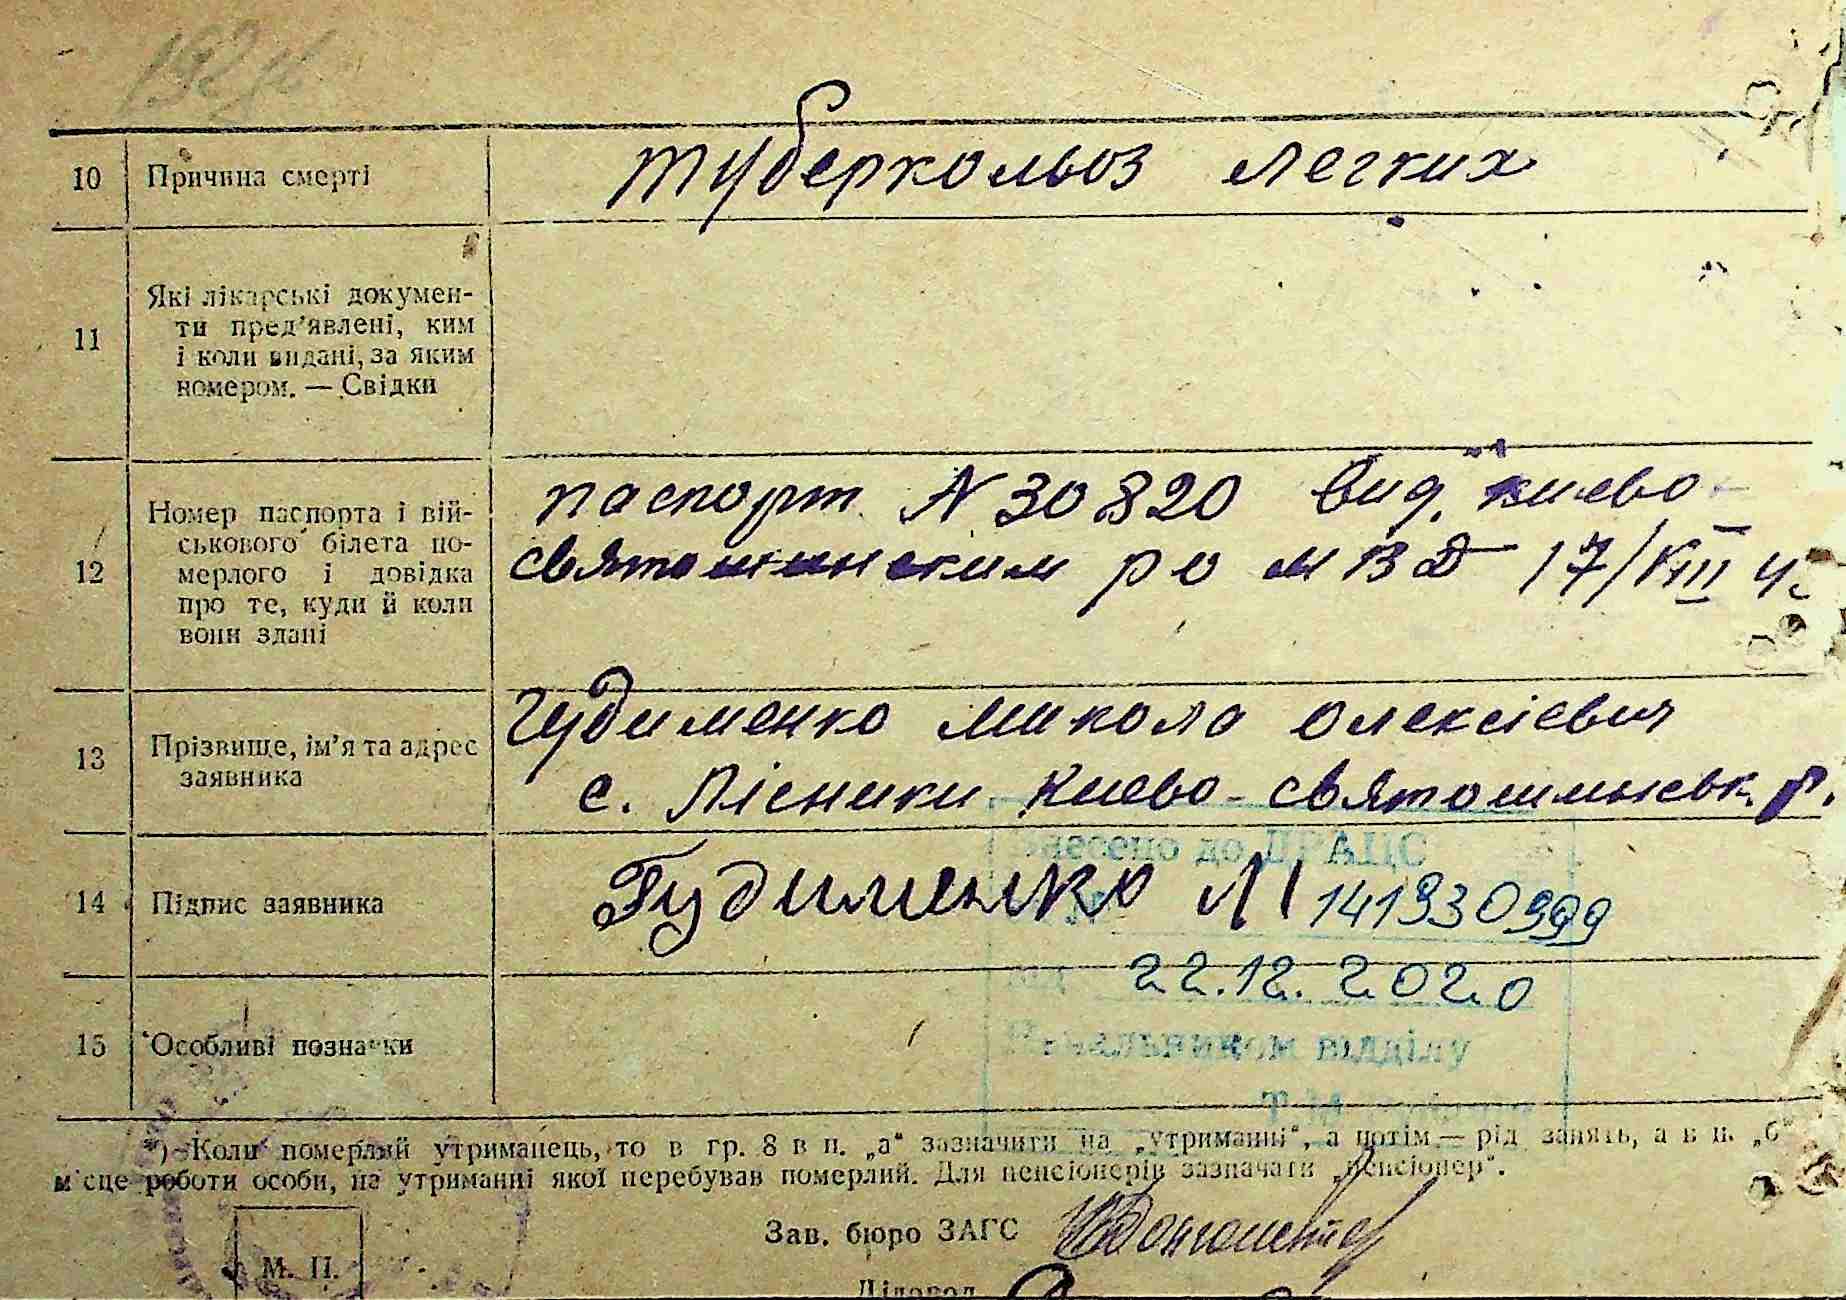 10 Причина смерті туберкольоз легких
11 Які лікарські докумен-
ти пред'явлені, ким
і коли видані, за яким
номером. — Свідки
12 Номер паспорта і вій-
ськового білета по-
мерлого і довідка
про те, куди й коли
вони здані
паспорт N 30820 вид. києво-
святошинским р о м в д 17/VIII
13 Прізвище, ім'я та адрес
заявника
Гудименко микола олексієвич
с. Лісники києво-святошинськ. р.
14 Підпис заявника Гудименко М
Внесено до ДРАЦС
141930999
22.12.2020
Начальником відділу
15 Особливі познаки
*) Коли померлий утриманець, то в гр. 8 в п. „а“ зазначити на „утриманні“, а потім — рід занять, а в п. „б“
місце роботи особи, на утриманні якої перебував померлий. Для пенсіонерів зазначати „пенсіонер“.
Зав. бюро ЗАГС
М. П.
Діловод